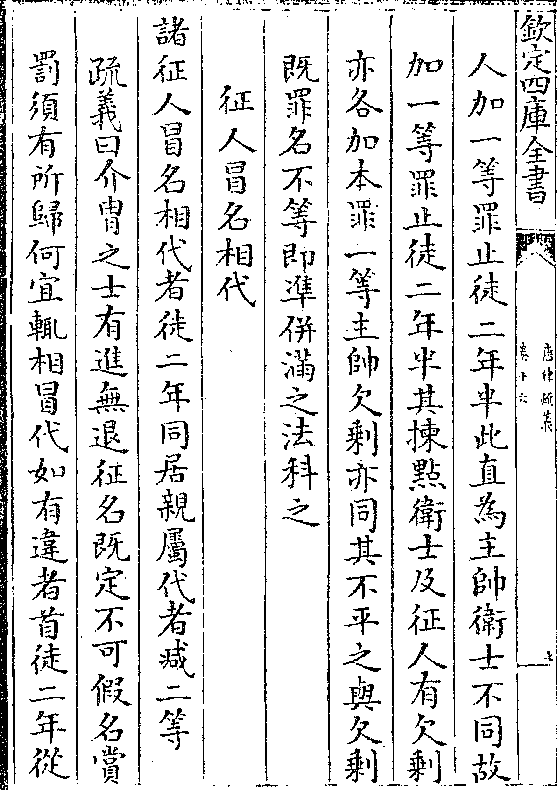 欽定四庫全書
唐律疏義
卷十六
人加一等罪止徒二年半此直為主帥衛士不同故
加一等罪止徒二年半其揀㸃衛士及征人有欠剩
亦各加本罪一等主帥欠剩亦同其不平之與欠剩
既罪名不等即準併滿之法科之
征人冒名相代
諸征人冒名相代者徒二年同居親屬代者减二等
疏義曰介胄之士有進無退征名既定不可假名賞
罰須有所歸何宜輒相冒代如有違者首徒二年從